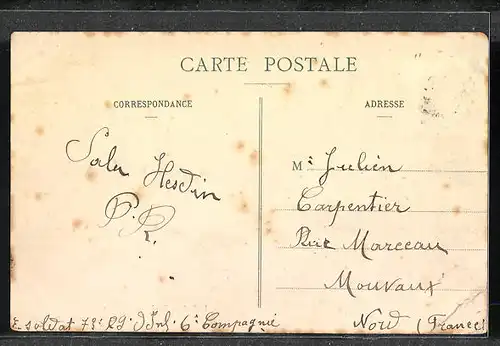 CARTE POSTALE
CORRESPONDANCE
ADRESSE
Hesdin
P. R.
Mr Julien
Carpentier
Rue Marceau
Mouvaux
Nord (France)
soldat 73e Rg. d'Inf. 6e Compagnie